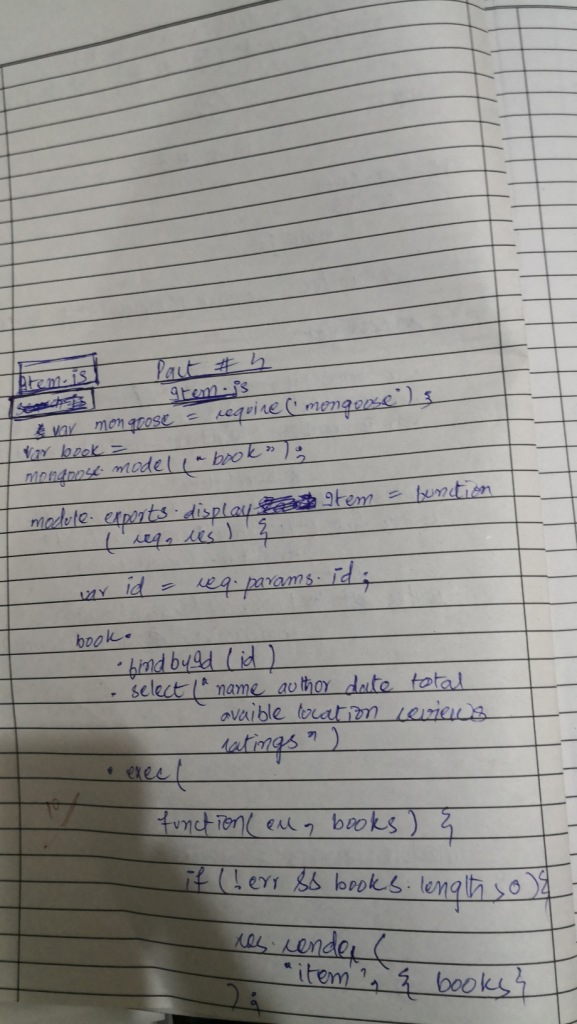 Item.js Part # 4
Item.js
var mongoose = require('mongoose');
var book =
mongoose.model("book");
module.exports.display Item = function
(req, res) {
var id = req.params.id;
book.
.findbyId (id)
. select ("name author date total
avaible location reviews
ratings")
. exec (
function(err, books) {
if (!err && books.length >0){
res.render (
"item", { books}
);
10